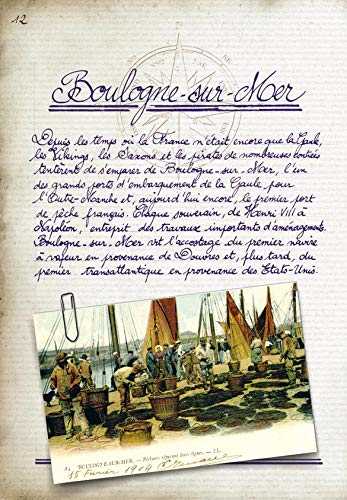 12
Boulogne-sur-Mer
Depuis les temps où la France n'était encore que la Gaule,
les Vikings, les Saxons et les pirates de nombreuses contrées
tentèrent de s'emparer de Boulogne-sur-Mer, l'un
des grands ports d'embarquement de la Gaule pour
l'Outre-Manche et, aujourd'hui encore, le premier port
de pêche français. Chaque souverain, de Henri VIII à
Napoléon, entreprit des travaux importants d'aménagements.
Boulogne-sur-Mer vit l'accostage du premier navire
à vapeur en provenance de Douvres et, plus tard, du
premier transatlantique en provenance des Etats-Unis.
BOULOGNE-SUR-MER. - Pêcheurs
LL.
15 Février 1904